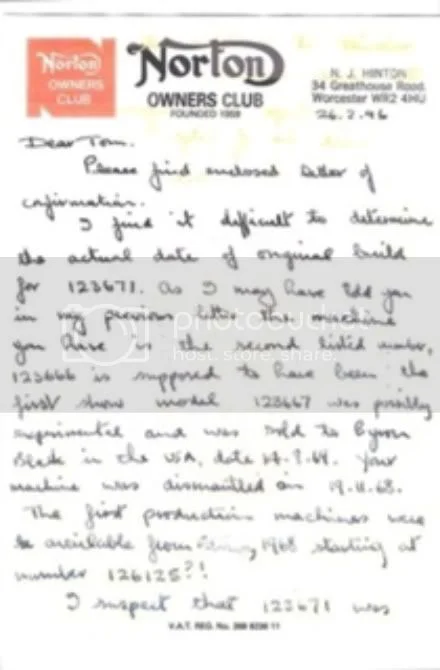 Norton
OWNERS
CLUB
Norton
OWNERS CLUB
FOUNDED 1959
N. J. HINTON
34 Greathouse Road
Worcester WR2 4HU
26.2.96
Dear Tom.
Please find enclosed letter of
confirmation.
I find it difficult to determine
the actual date of original build
for 123671. As I may have told you
in my previous letter the machine
you have is the second listed number,
123666 is supposed to have been the
first show model 123667 was possibly
experimental and was sold to Byron
Black in the USA, date 14.7.69. Your
machine was dismantled on 19.11.68.
The first production machines were
be available from 1968 starting at
number 126125?!
I suspect that 123671 was
V.A.T. REG. No.
photobucket
host. store. share.